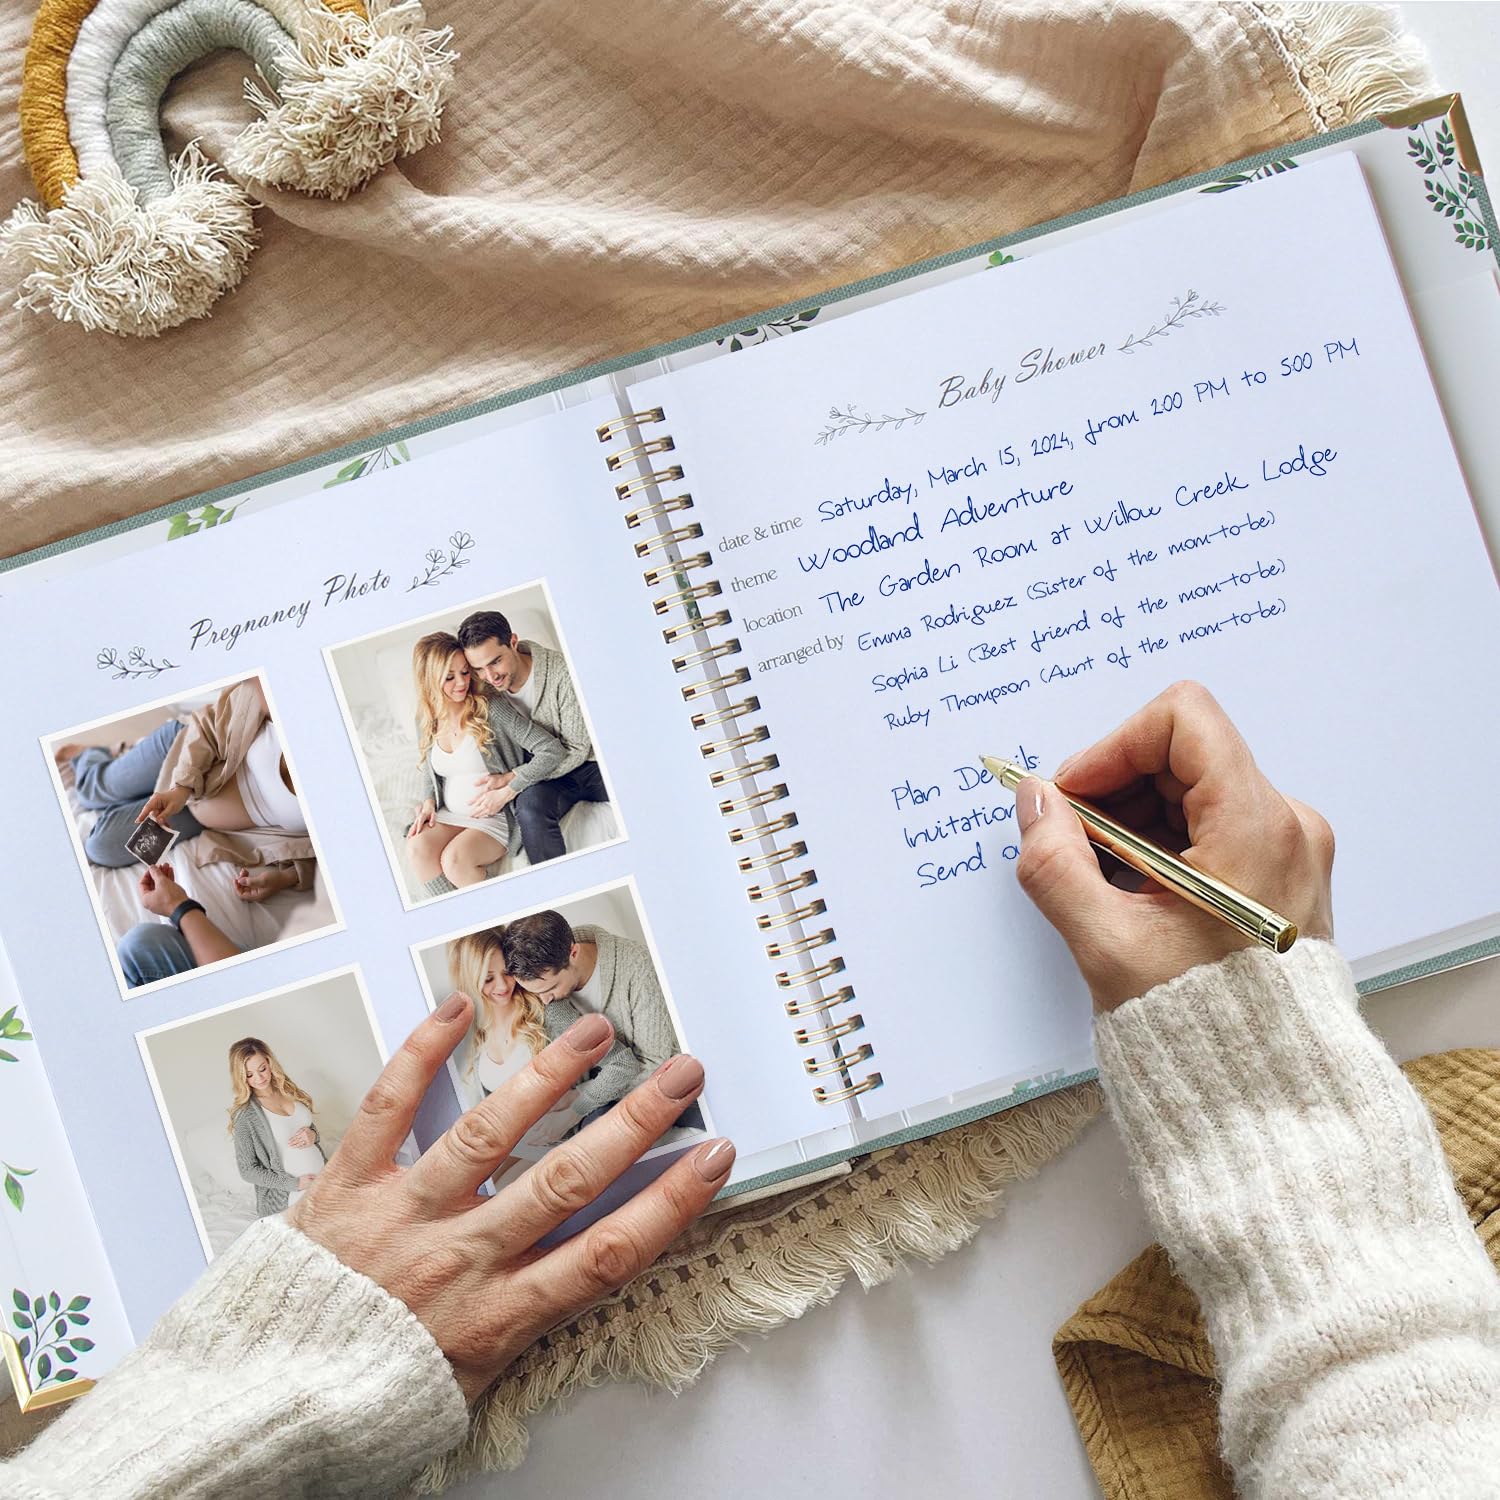 Pregnancy Photo
Baby Shower
date & time Saturday, March 15, 2024, from 2:00 PM to 5:00 PM
theme Woodland Adventure
location The Garden Room at Willow Creek Lodge
arranged by Emma Rodriguez (Sister of the mom-to-be)
Sophia Li (Best friend of the mom-to-be)
Ruby Thompson (Aunt of the mom-to-be)
Plan
Send